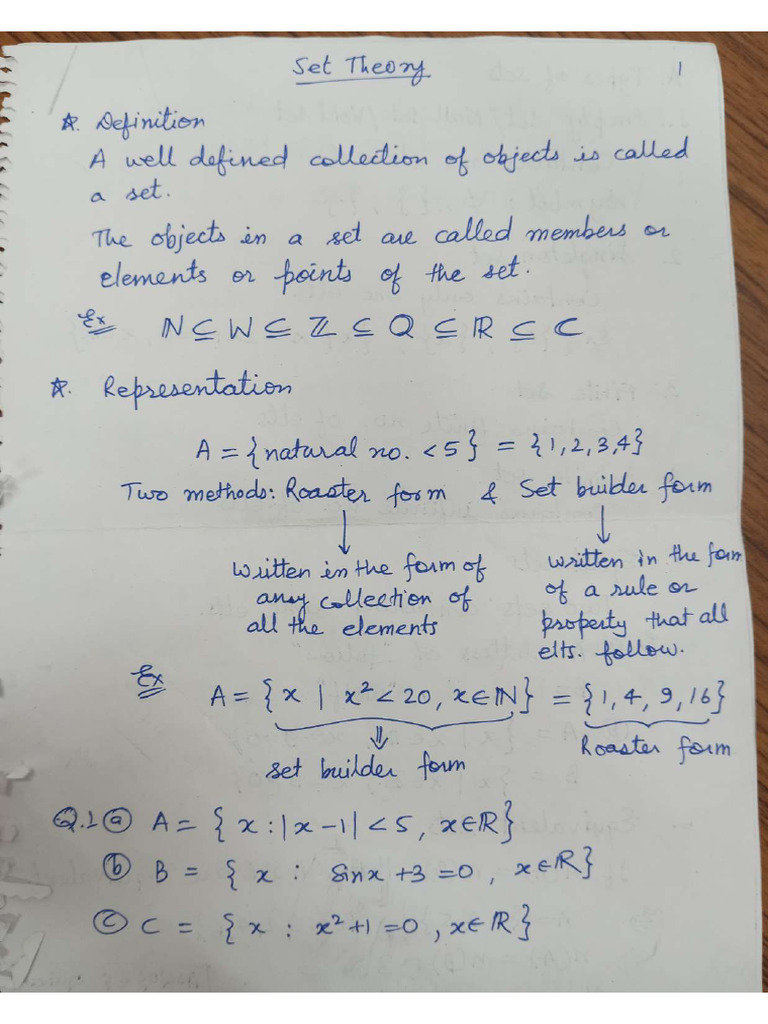 Set Theory 1
☆. Definition
A well defined collection of objects is called
a set.
The objects in a set are called members or
elements or points of the set.
Ex N ⊆ W ⊆ Z ⊆ Q ⊆ R ⊆ C
☆. Representation
A = {natural no. < 5} = {1,2,3,4}
Two methods: Roaster form & Set builder form
↓ ↓
Written in the form of written in the form
any collection of of a rule or
all the elements property that all
elts. follow.
Ex A = {x | x² < 20, x∈ℕ} = {1, 4, 9, 16}
⇓ Roaster form
set builder form
Q.1 (a) A = {x : |x-1| < 5, x∈ℝ}
(b) B = {x : sinx + 3 = 0, x∈ℝ}
(c) C = {x : x²+1 = 0, x∈ℝ}